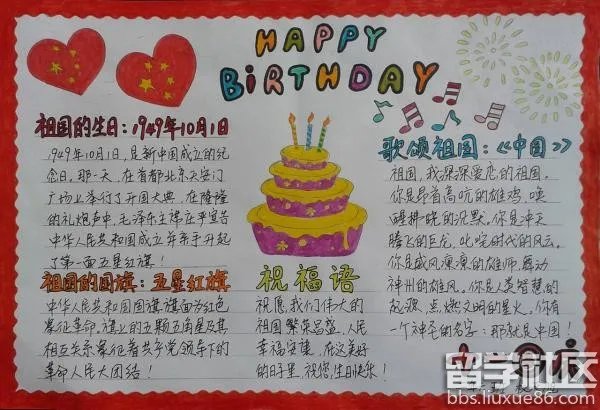 HAPPY
BiRTHDAY
祖国的生日:1949年10月1日
1949年10月1日,是新中国成立的纪
念日。那一天,在首都北京天安门
广场上举行了开国大典,在隆隆
的礼炮声中,毛泽东主席庄严宣告
中华人民共和国成立并亲手升起
了第一面五星红旗!
祖国的国旗:五星红旗
中华人民共和国国旗旗面为红色
象征革命,旗上的五颗五角星及其
相互关系象征着共产党领导下的
革命人民大团结!
祝福语
祝愿我们伟大的
祖国繁荣昌盛,人民
幸福安康,在这美好
的时星,祝您,生日快乐!
歌颂祖国:《中国》
祖国,我深深爱恋的祖国。
你是昂首高吭的雄鸡,唤
醒拂晓的沉默,你是冲天
腾飞的巨龙,叱咤时代的风云,
你是威风凛凛的雄师,舞动
神州的雄风,你是人类智慧的
起源,点燃文明的星火。你有
一个神圣的名字:那就是中国!
留学社区
bbs.liuxue86.com